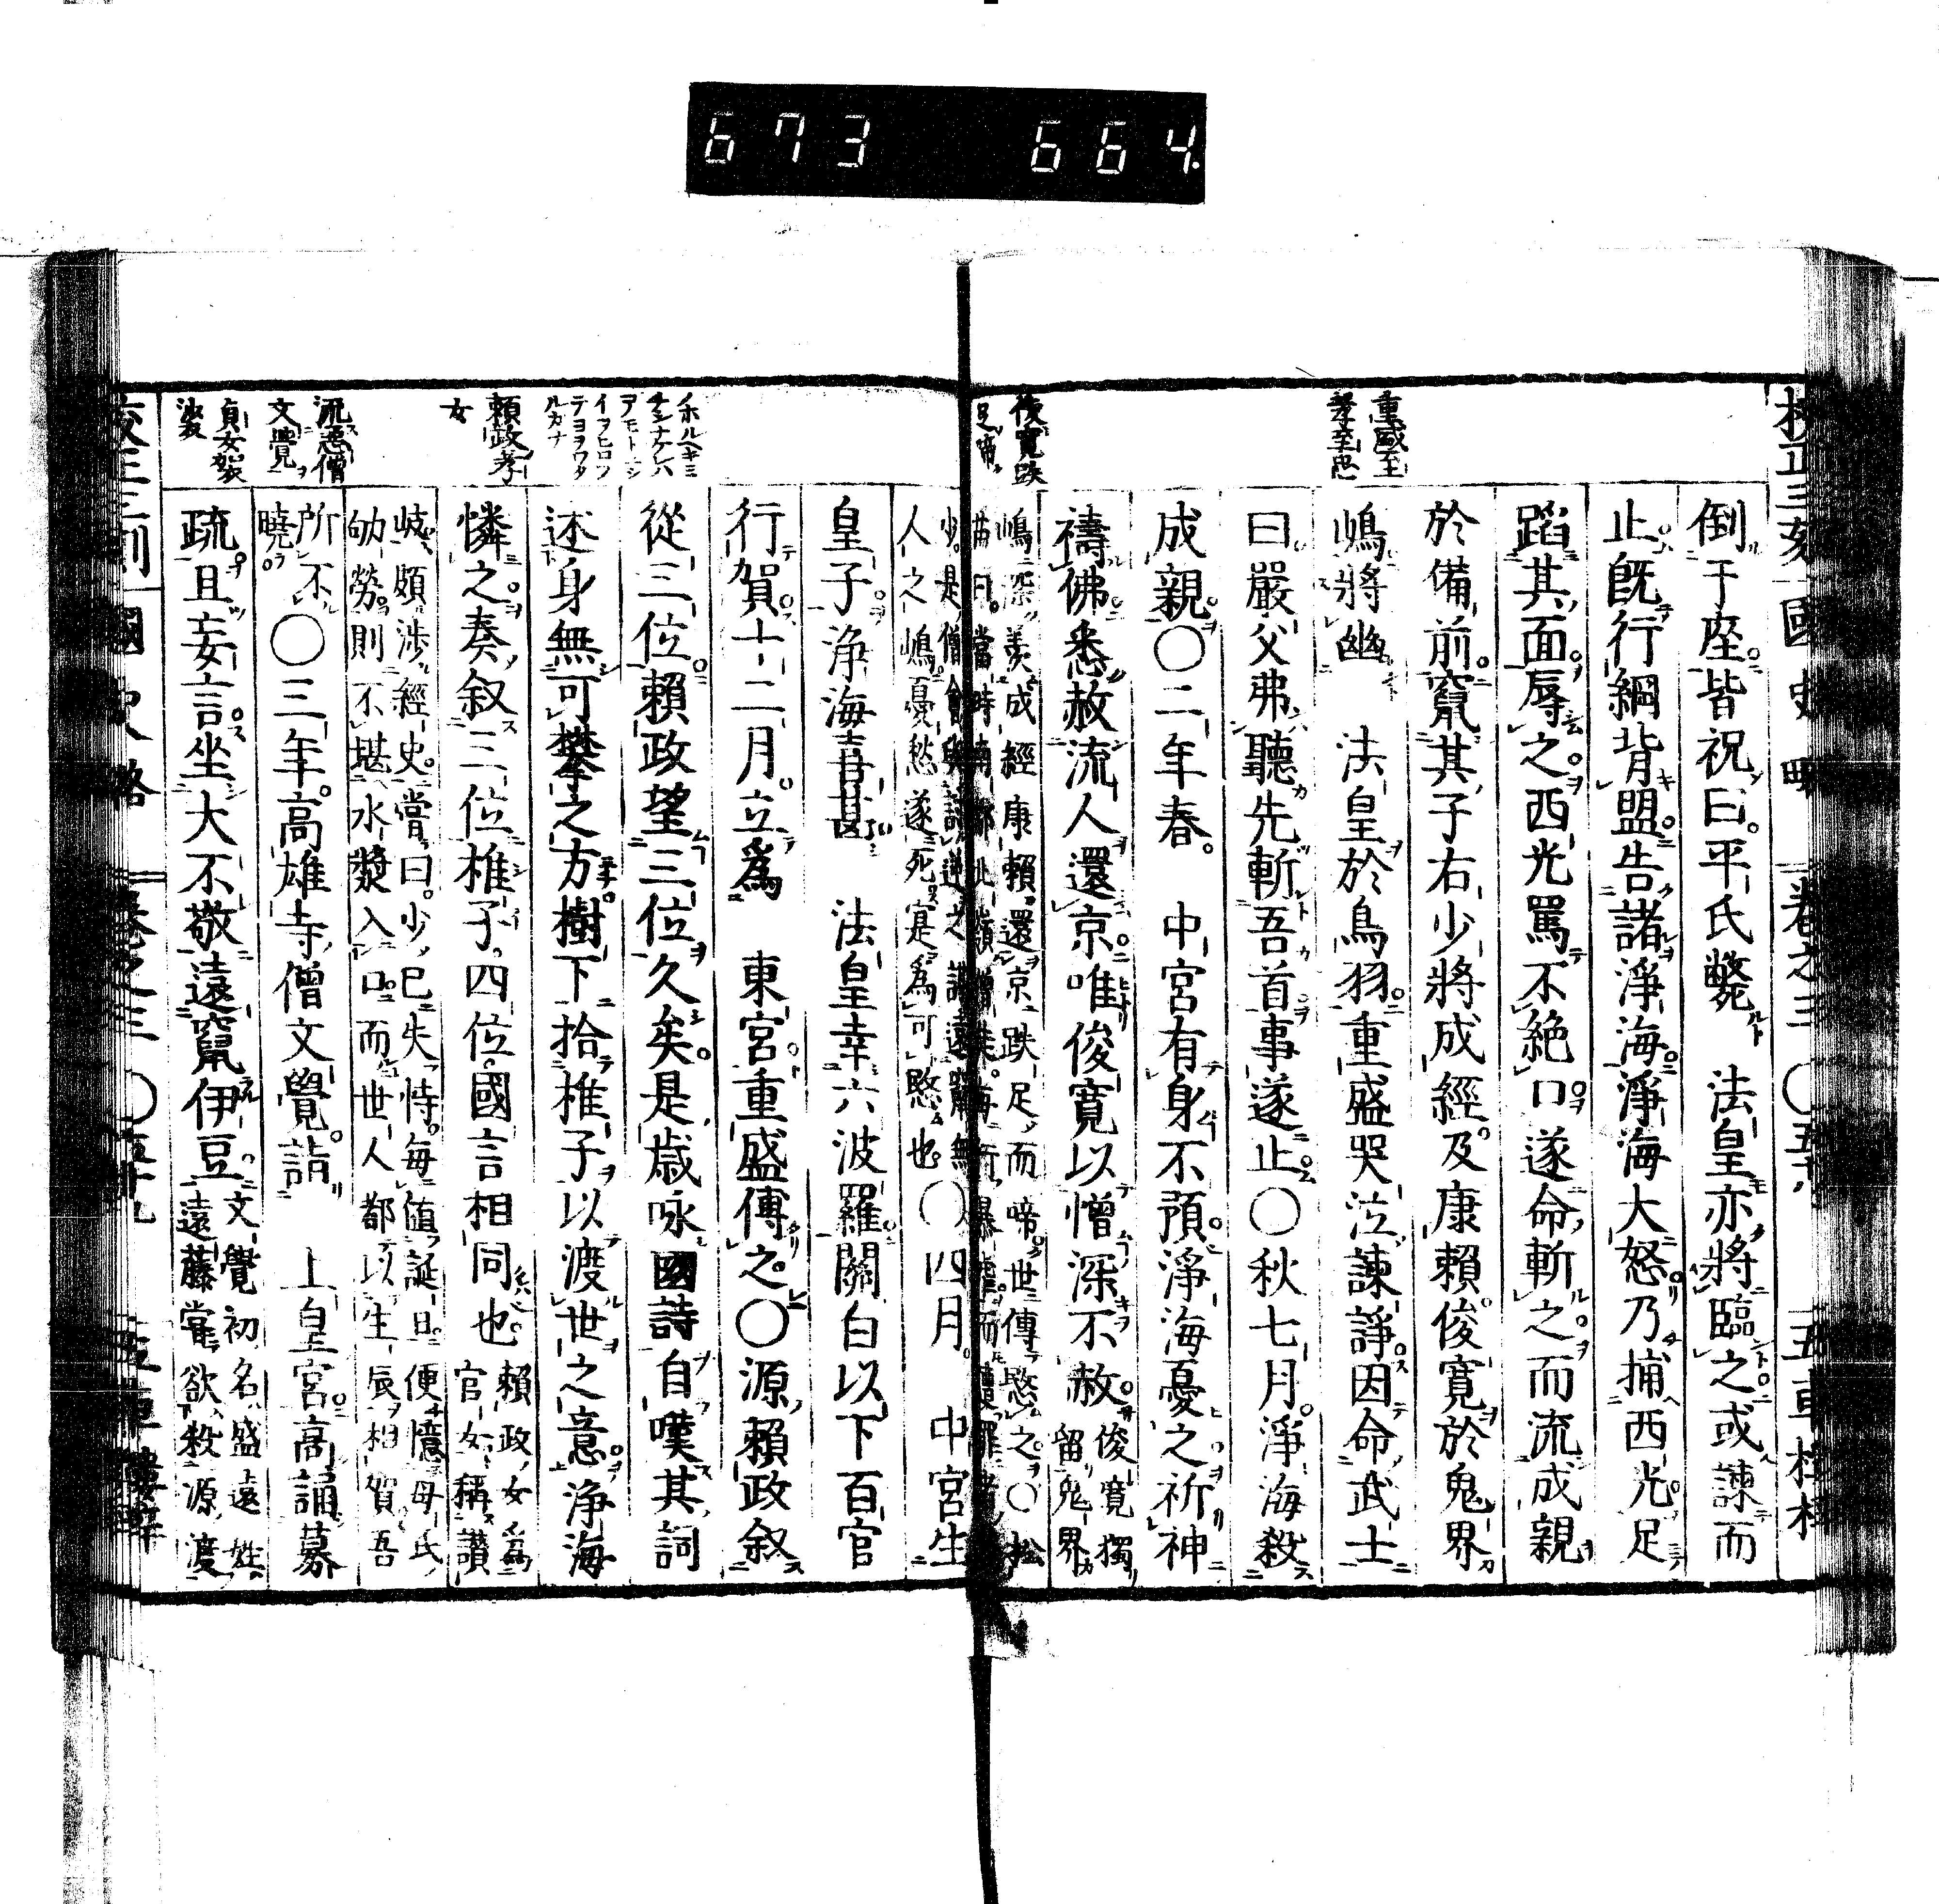 673 664
倒于座皆祝曰平氏斃 法皇亦將臨之或諫而
止既行綱背盟告諸淨海淨海大怒乃捕西光足
蹈其面辱之西光罵不絶口遂命斬之而流成親
於備前竄其子右少將成經及康賴俊寬於鬼界
嶋將幽 法皇於鳥羽重盛哭泣諫諍因命武士
曰嚴父弗聽先斬吾首事遂止〇秋七月淨海殺
成親〇二年春 中宮有身不預淨海憂之祈神
禱佛悉赦流人還京唯俊寬以憎深不赦
俊寬獨
留鬼界
嶋深羨成經康賴還京跌足而啼世傳愍之〇松
苗曰當時南都北嶺
少是僧餘與謀逆之
人之嶋憂愁遂死寔爲可愍也
〇四月 中宮生
皇子淨海喜甚 法皇幸六波羅關白以下百官
行賀十二月立爲 東宮重盛傅之〇源賴政叙
從三位賴政望三位久矣是歳咏國詩自嘆其詞
述身無可攀之方樹下拾椎子以渡世之意淨海
憐之奏叙三位椎子四位國言相同也
賴政女爲
官女稱讃
岐頗渉經史嘗曰少已失恃每値誕日便憶母氏
劬勞則不堪水漿入口而世人都以生辰相賀吾
所不
曉
〇三年高雄寺僧文覺詣 上皇宮高誦募
疏且妄言坐大不敬遠竄伊豆
文覺初名盛遠姓
遠藤嘗欲殺源渡
重盛至
孝至忠
俊寬跌
足啼
ホルヘキミ
チシナケレハ
アモトニシ
イヲヒロツ
テヨヲワタ
ルカナ
賴政孝
女
流惡僧
文覺
貞女袈
裟
校正三刻 國史略 卷之三 〇五十八 五車樓梓
校正三刻 國史略 卷之三 〇五十九 五車樓梓